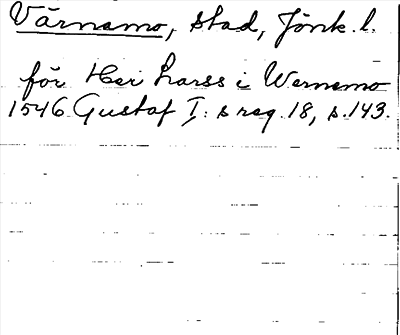 Värnamo, stad, Jönk. l.
för Her Larss i Wernamo
1546 Gustaf I:s reg. 18, s. 143.